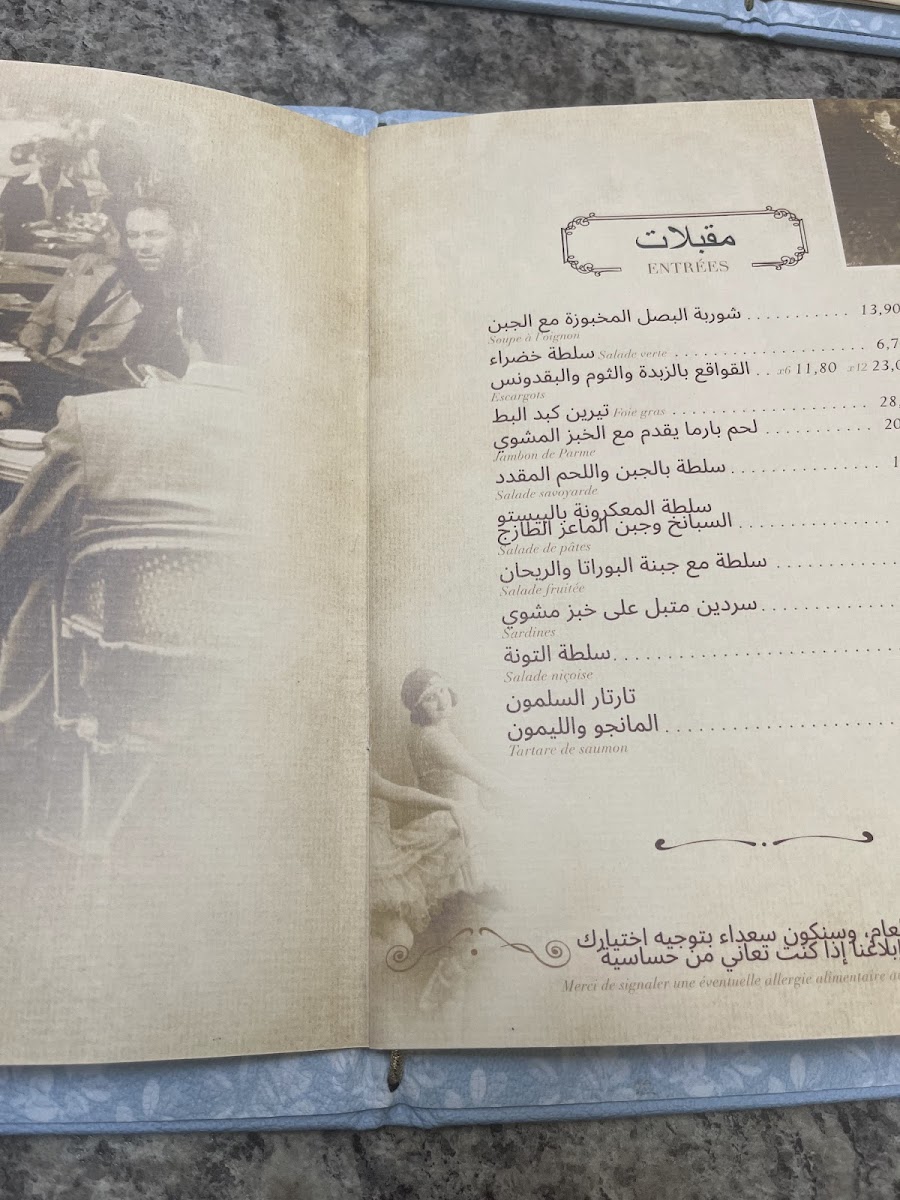 مقبلات
ENTRÉES
شوربة البصل المخبوزة مع الجبن . . . . . . . . . . . 13,90
Soupe à l'oignon
سلطة خضراء Salade verte . . . . . . . . . . . . . . . . . . . . 6,7
القواقع بالزبدة والثوم والبقدونس . . x6 11,80 x12 23,0
Escargots
تيرين كبد البط Foie gras . . . . . . . . . . . . . . . . . . . . . 28,
لحم بارما يقدم مع الخبز المشوي . . . . . . . . . . . 20
Jambon de Parme
سلطة بالجبن واللحم المقدد . . . . . . . . . . . . . . . 1
Salade savoyarde
سلطة المعكرونة بالبيستو
السبانخ وجبن الماعز الطازج . . . . . . . . . . . . . .
Salade de pâtes
سلطة مع جبنة البوراتا والريحان . . . . . . . . . . .
Salade fruitée
سردين متبل على خبز مشوي . . . . . . . . . . . . .
Sardines
سلطة التونة . . . . . . . . . . . . . . . . . . . . . . . . . .
Salade niçoise
تارتار السلمون
المانجو والليمون . . . . . . . . . . . . . . . . . . . . . .
Tartare de saumon
وسنكون سعداء بتوجيه اختيارك
إذا كنت تعاني من حساسية
Merci de signaler une éventuelle allergie alimentaire